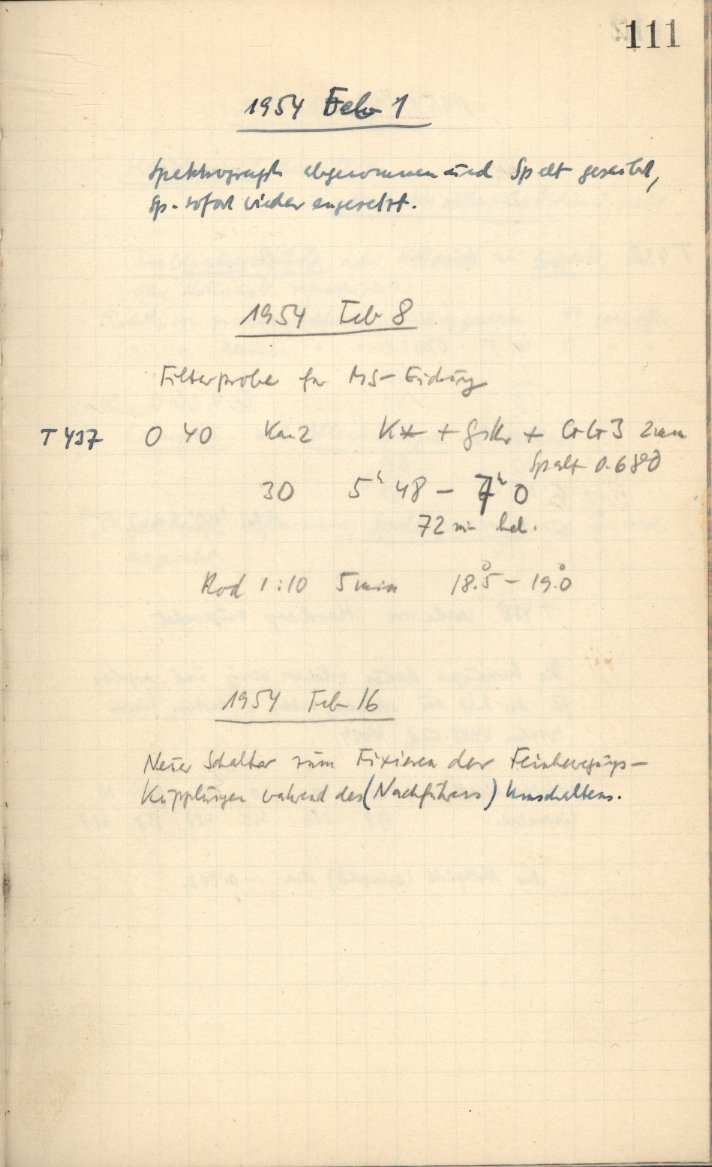 111
1954 Feb 1
Spektrograph abgenommen und Spalt gesäubert,
Sp. sofort wieder angesetzt.
1954 Feb 8
Filterprobe für MS-Eichung
T 437 O 40 Kan 2 + + 2 mm
Spalt 0.680
30 5h 48 – 7h 0
72 min bel.
Rod 1:10 5 min 18.°5 – 19.°0
1954 Feb 16
Neuer Schalter zum Fixieren der Feinbewegungs-
Kupplungen während des (Nachführens) Umschaltens.